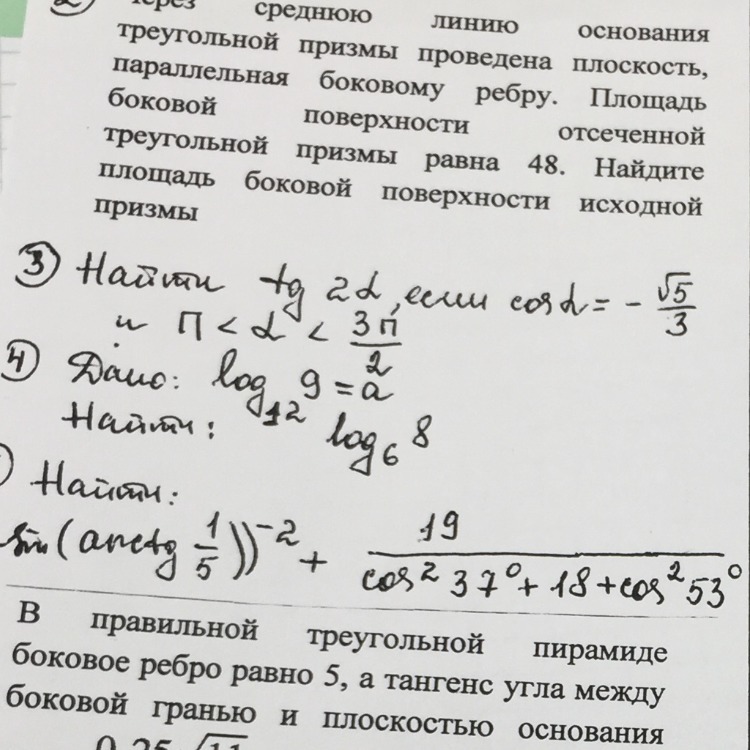 через среднюю линию основания
треугольной призмы проведена плоскость,
параллельная боковому ребру. Площадь
боковой поверхности отсеченной
треугольной призмы равна 48. Найдите
площадь боковой поверхности исходной
призмы
③ Найти tg 2α, если cos α = - √5/3
и π < α < 3π/2
④ Дано: log₁₂ 9 = a
Найти: log₆ 8
Найти:
sin(arctg 1/5))⁻² + 19/(cos² 37° + 18 + cos² 53°)
В правильной треугольной пирамиде
боковое ребро равно 5, а тангенс угла между
боковой гранью и плоскостью основания
0,25 √11